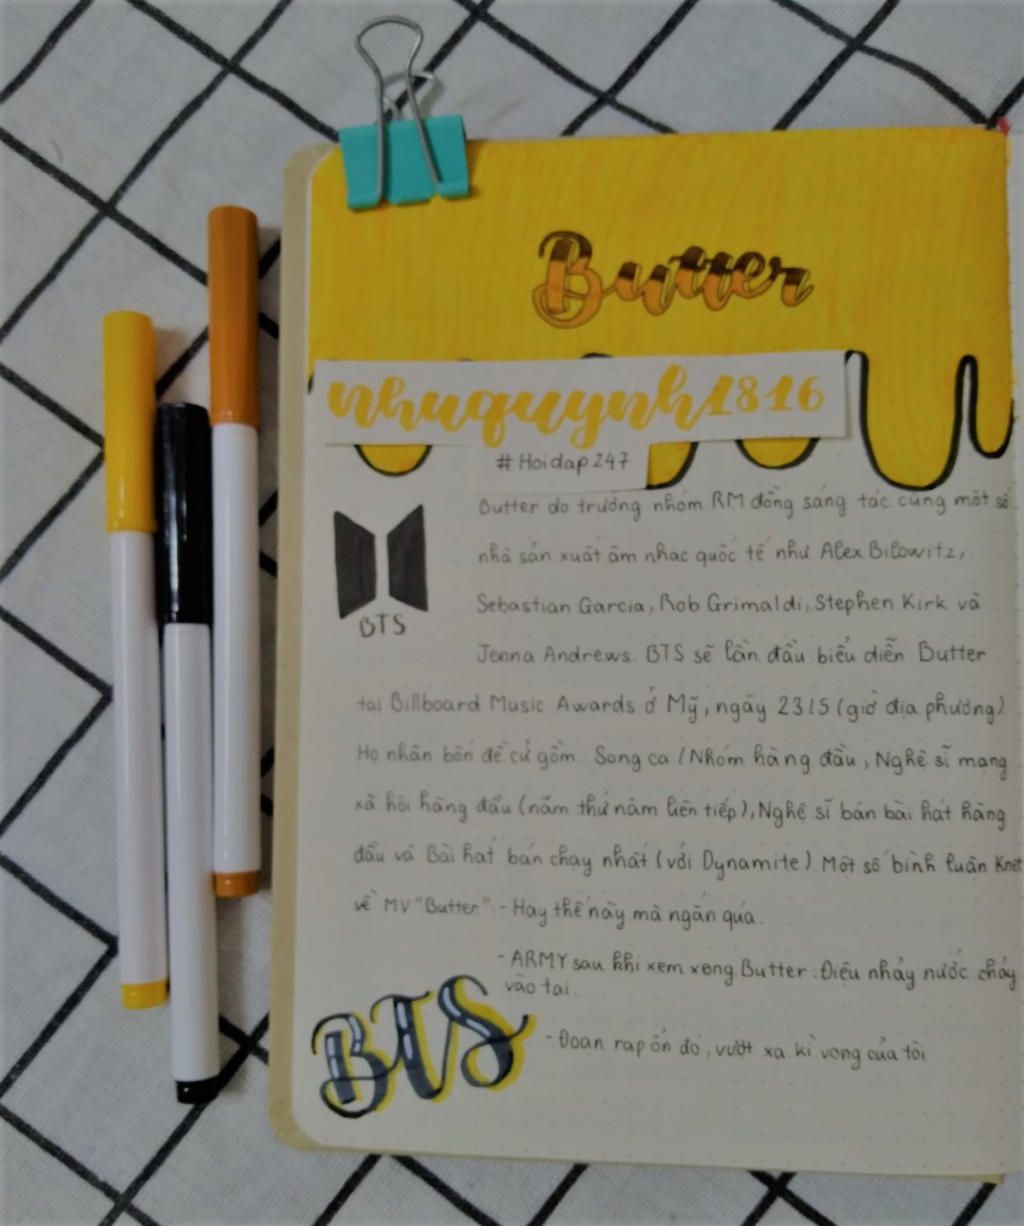 Butter
nhuquynh1816
#Hoidap247
Butter do trưởng nhóm RM đồng sáng tác cùng một số
nhà sản xuất âm nhạc quốc tế như Alex Bilowitz,
Sebastian Garcia, Rob Grimaldi, Stephen Kirk và
BTS
Jenna Andrews. BTS sẽ lần đầu biểu diễn Butter
tại Billboard Music Awards ở Mỹ, ngày 23/5 (giờ địa phương).
Họ nhận bốn đề cử gồm: Song ca / Nhóm hàng đầu, Nghệ sĩ mạng
xã hội hàng đầu (năm thứ năm liên tiếp), Nghệ sĩ bán bài hát hàng
đầu và Bài hát bán chạy nhất (với Dynamite). Một số bình luận Knet
về MV "Butter": - Hay thế này mà ngắn quá.
- ARMY sau khi xem xong Butter: Điệu nhảy nước chảy
vào tai.
- Đoạn rap ổn đó, vượt xa kì vọng của tôi
BTS